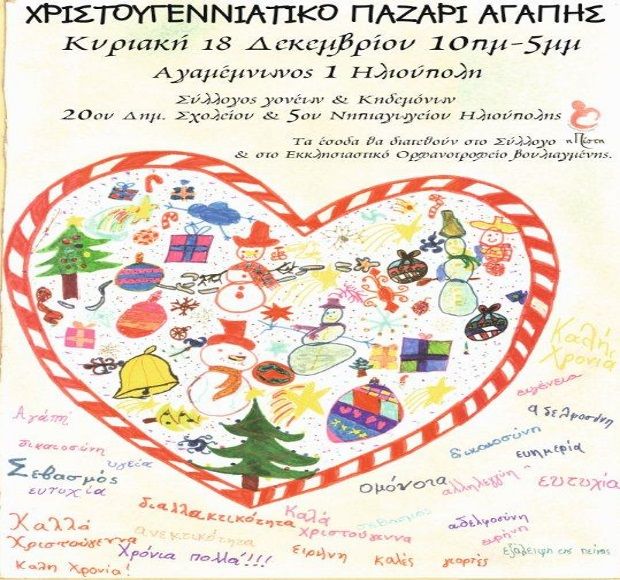 ΧΡΙΣΤΟΥΓΕΝΝΙΑΤΙΚΟ ΠΑΖΑΡΙ ΑΓΑΠΗΣ
Κυριακή 18 Δεκεμβρίου 10πμ-5μμ
Αγαμέμνωνος 1 Ηλιούπολη
Σύλλογος γονέων & Κηδεμόνων
20ου Δημ. Σχολείου & 5ου Νηπιαγωγείου Ηλιούπολης
Τα έσοδα θα διατεθούν στο Σύλλογο η Πίστη
& στο Εκκλησιαστικό Ορφανοτροφείο βουλιαγμένης.
Καλή
Χρονιά
ευγένεια
Αγάπη
αδελφοσύνη
δικαιοσύνη
υγεία
δικαιοσύνη
ευημερία
Σεβασμός
ευτυχία
ομόνοια
αλληλεγγύη
ευτυχία
διαλλακτικότητα
Καλά
Χριστούγεννα
σεβασμός
αδελφοσύνη
Καλλά
Χριστούγεννα
ανεκτικότητα
ειρήνη
Χρόνια πολλά!!!
ειρήνη
καλές γιορτές
εξάλειψη της πείνας
Καλη Χρονια!